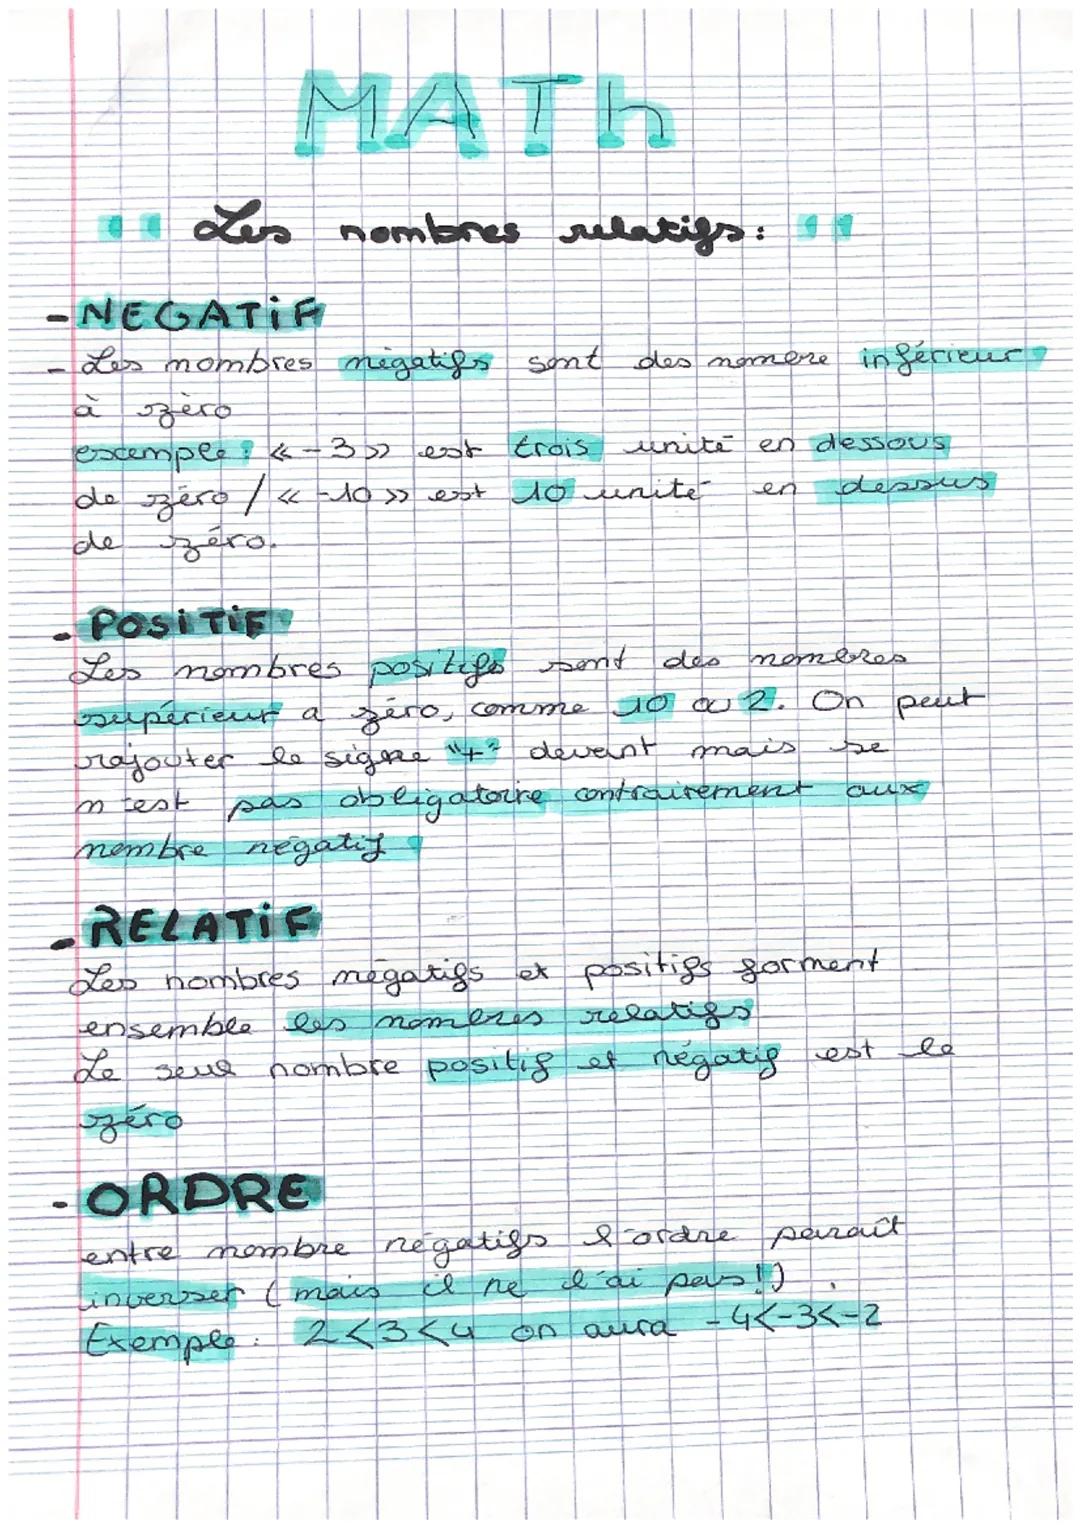 MATh
" Les nombres relatifs : "
- NEGATiF
- Les nombres négatifs sont des nomere inférieur
à zèro
exemple : « -3 » est trois unité en dessous
de zéro / « -10 » est 10 unité en dessus
de zéro.
- POSiTiF
Les nombres positifs sont des nombres
supérieur a zéro, comme 10 ou 2. On peut
rajouter le signe "+" devant mais se
n'est pas obligatoire contrairement aux
nombre négatif
- RELATiF
Les nombres négatifs et positifs forment
ensemble les nombres relatifs
Le seul nombre positif et négatif est le
zéro
- ORDRE
entre nombre négatifs l'ordre parait
inverser (mais il ne l'ai pas !)
Exemple : 2<3<4 on aura -4<-3<-2